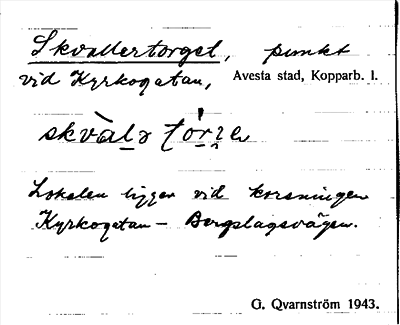 Skvallertorget, punkt
vid Kyrkogatan, Avesta stad, Kopparb. l.
Lokalen ligger vid korsningen
Kyrkogatan – Bergslagsvägen.
G. Qvarnström 1943.